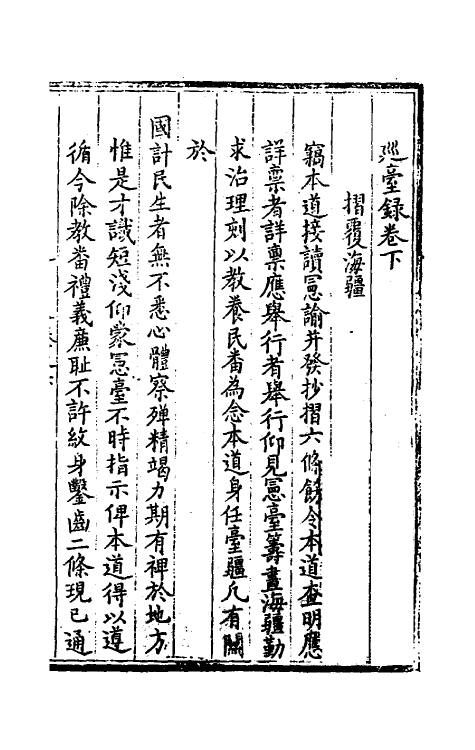 廵臺録卷下
摺覆海疆
竊本道接讀憲諭并發抄摺六條飭令本道查明應
詳禀者詳禀應舉行者舉行仰見憲臺籌畫海疆勤
求治理刻以教養民番為念本道身任臺疆凡有關
於
國計民生者無不悉心體察殫精竭力期有裨於地方
惟是才識短淺仰蒙憲臺不時指示俾本道得以遵
循今除教番禮義廉耻不許紋身鑿齒二條現已通